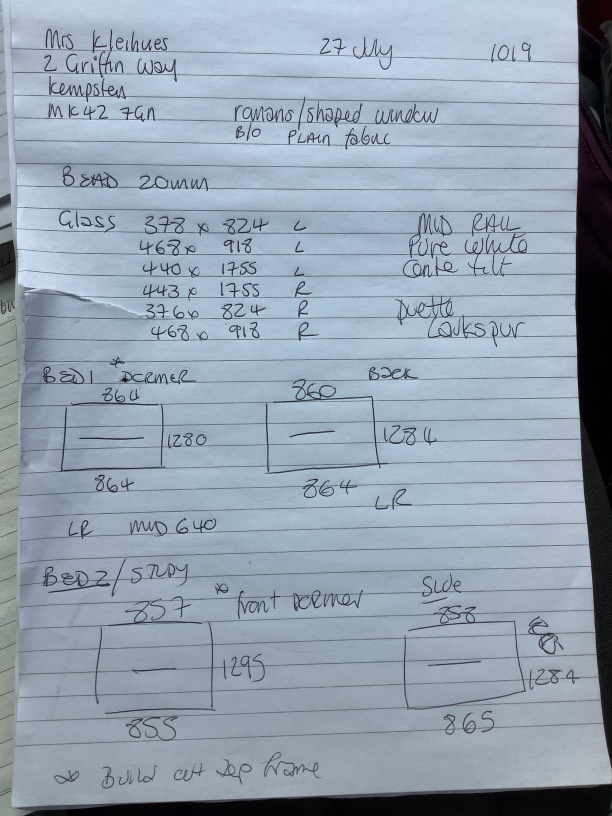 Mrs Kleihues 27 July 1019
2 Griffin Way
Kempsten
MK42 7GN romans/shaped window
B/O PLAIN fabric
BEAD 20mm
Glass 378 x 824 L MID RAIL
468 x 918 L Pure White
440 x 1755 L tilt
443 x 1755 R
376 x 824 R Duette
468 x 918 R
BED 1 * DORMER BACK
864 860
1280 1284
864 864
LR
LR MID 640
BED 2 / STUDY * front DORMER Side
857 858
1295 1284
855 865
* Build out top frame